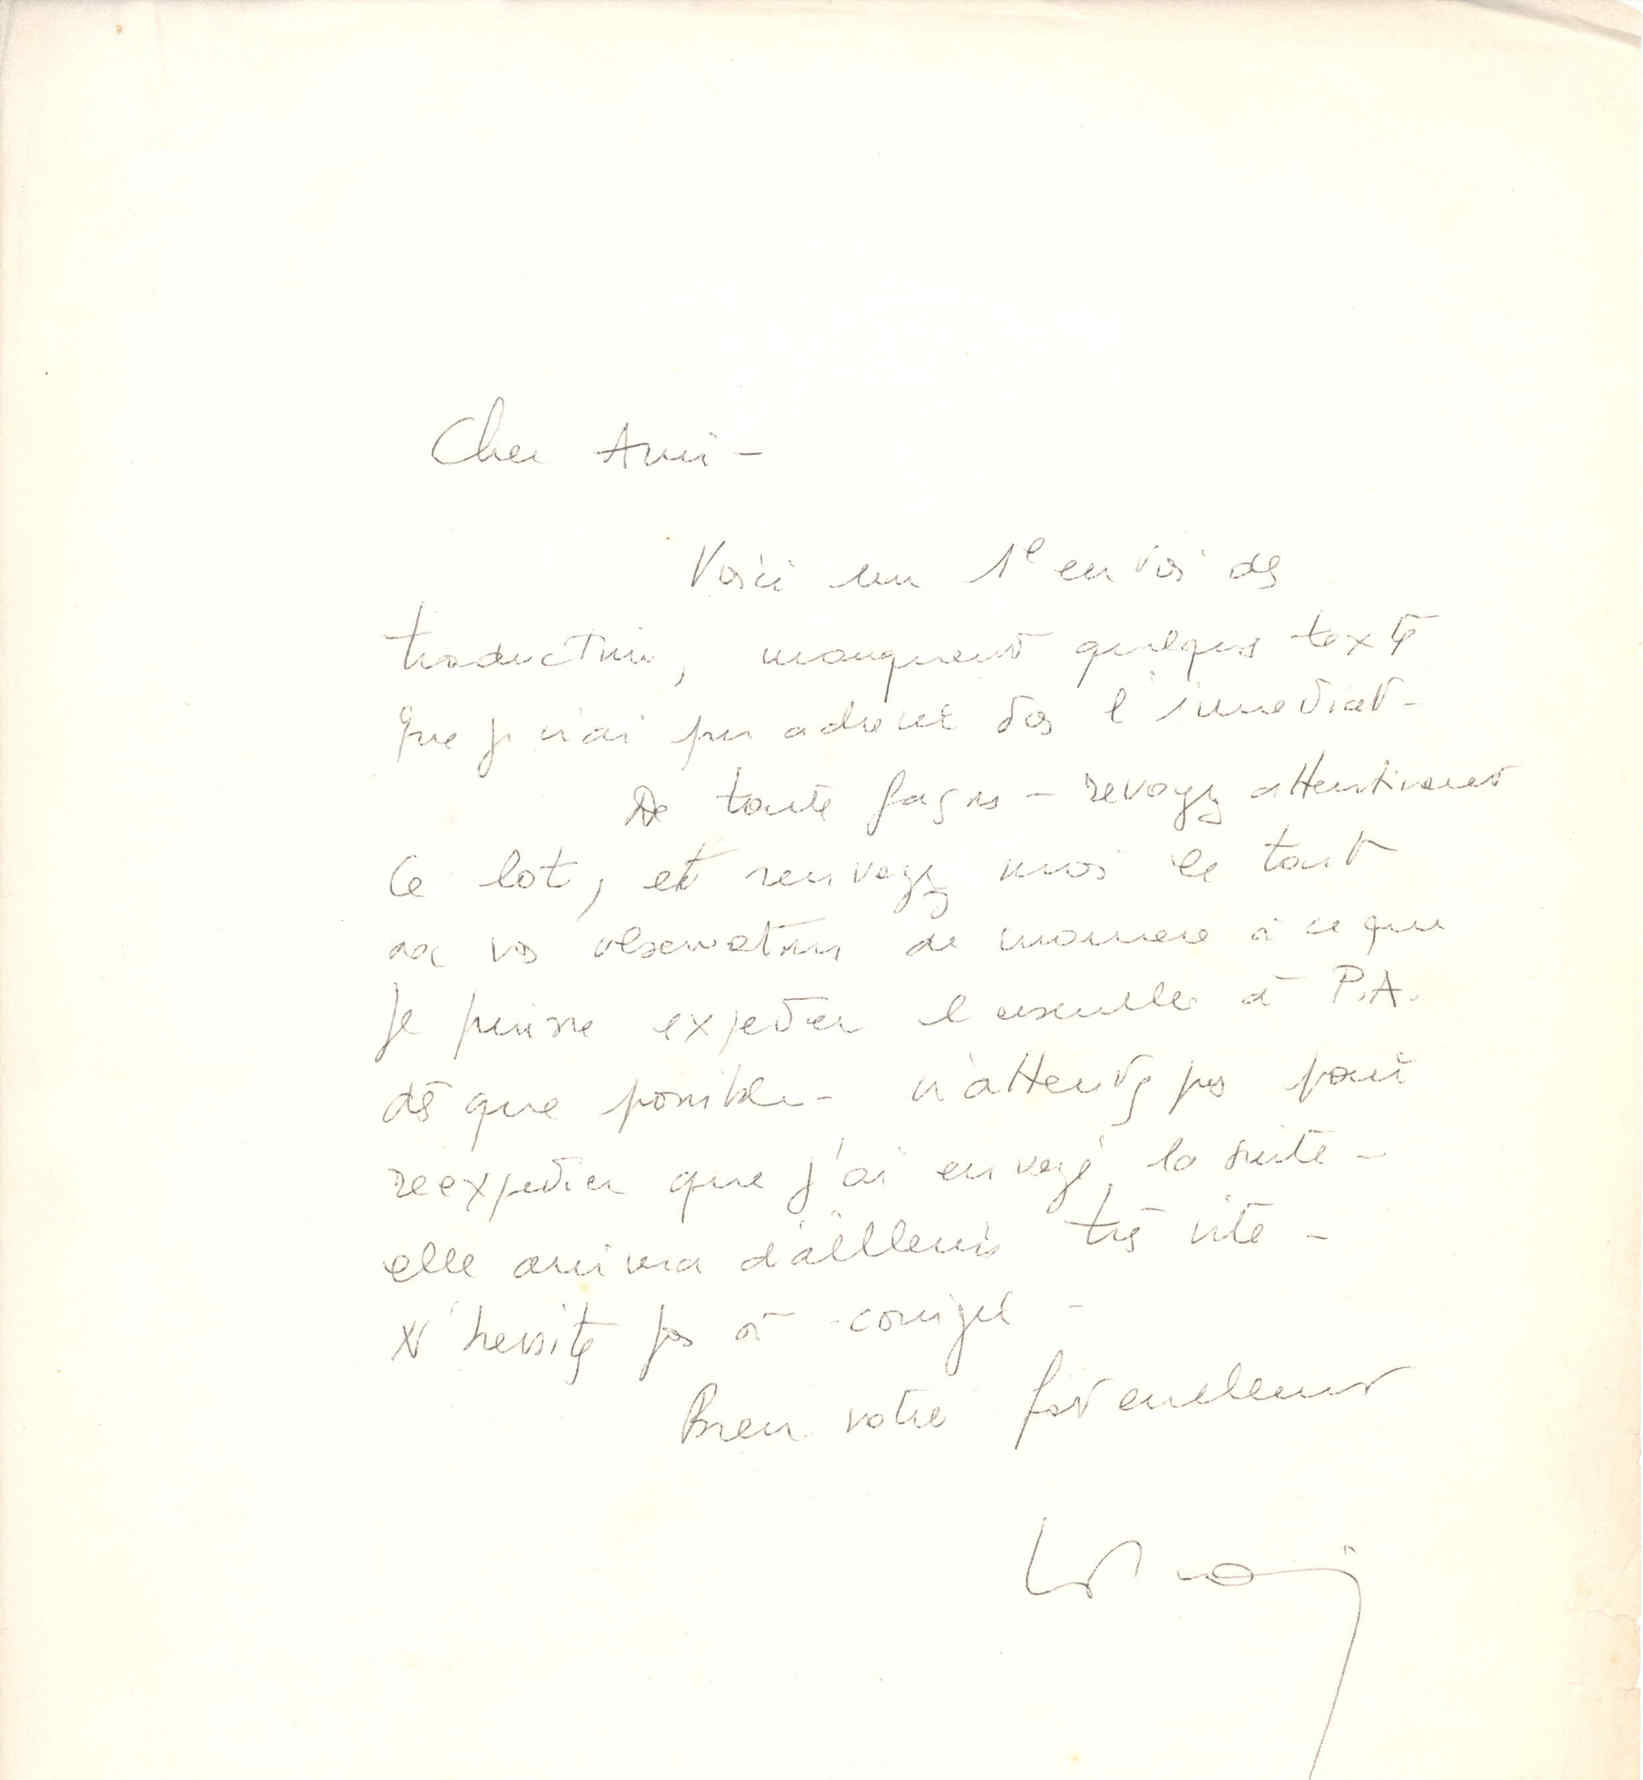 Cher Ami -
Voici un 1e envoi des
traductions, manquent quelques textes
que je n'ai pu adresser dès l'immediat -
De toute façons - revoyez attentivement
ce lot, et renvoyez moi le tout
avec vos observations de maniere à ce que
je puisse expedier l'ensemble à P.A.
dès que possible - n'attendez pas pour
reexpedier que j'ai envoyé la suite -
elle arrivera d'ailleurs très vite -
N'hesitez pas à corriger -
Bien votre fidelement